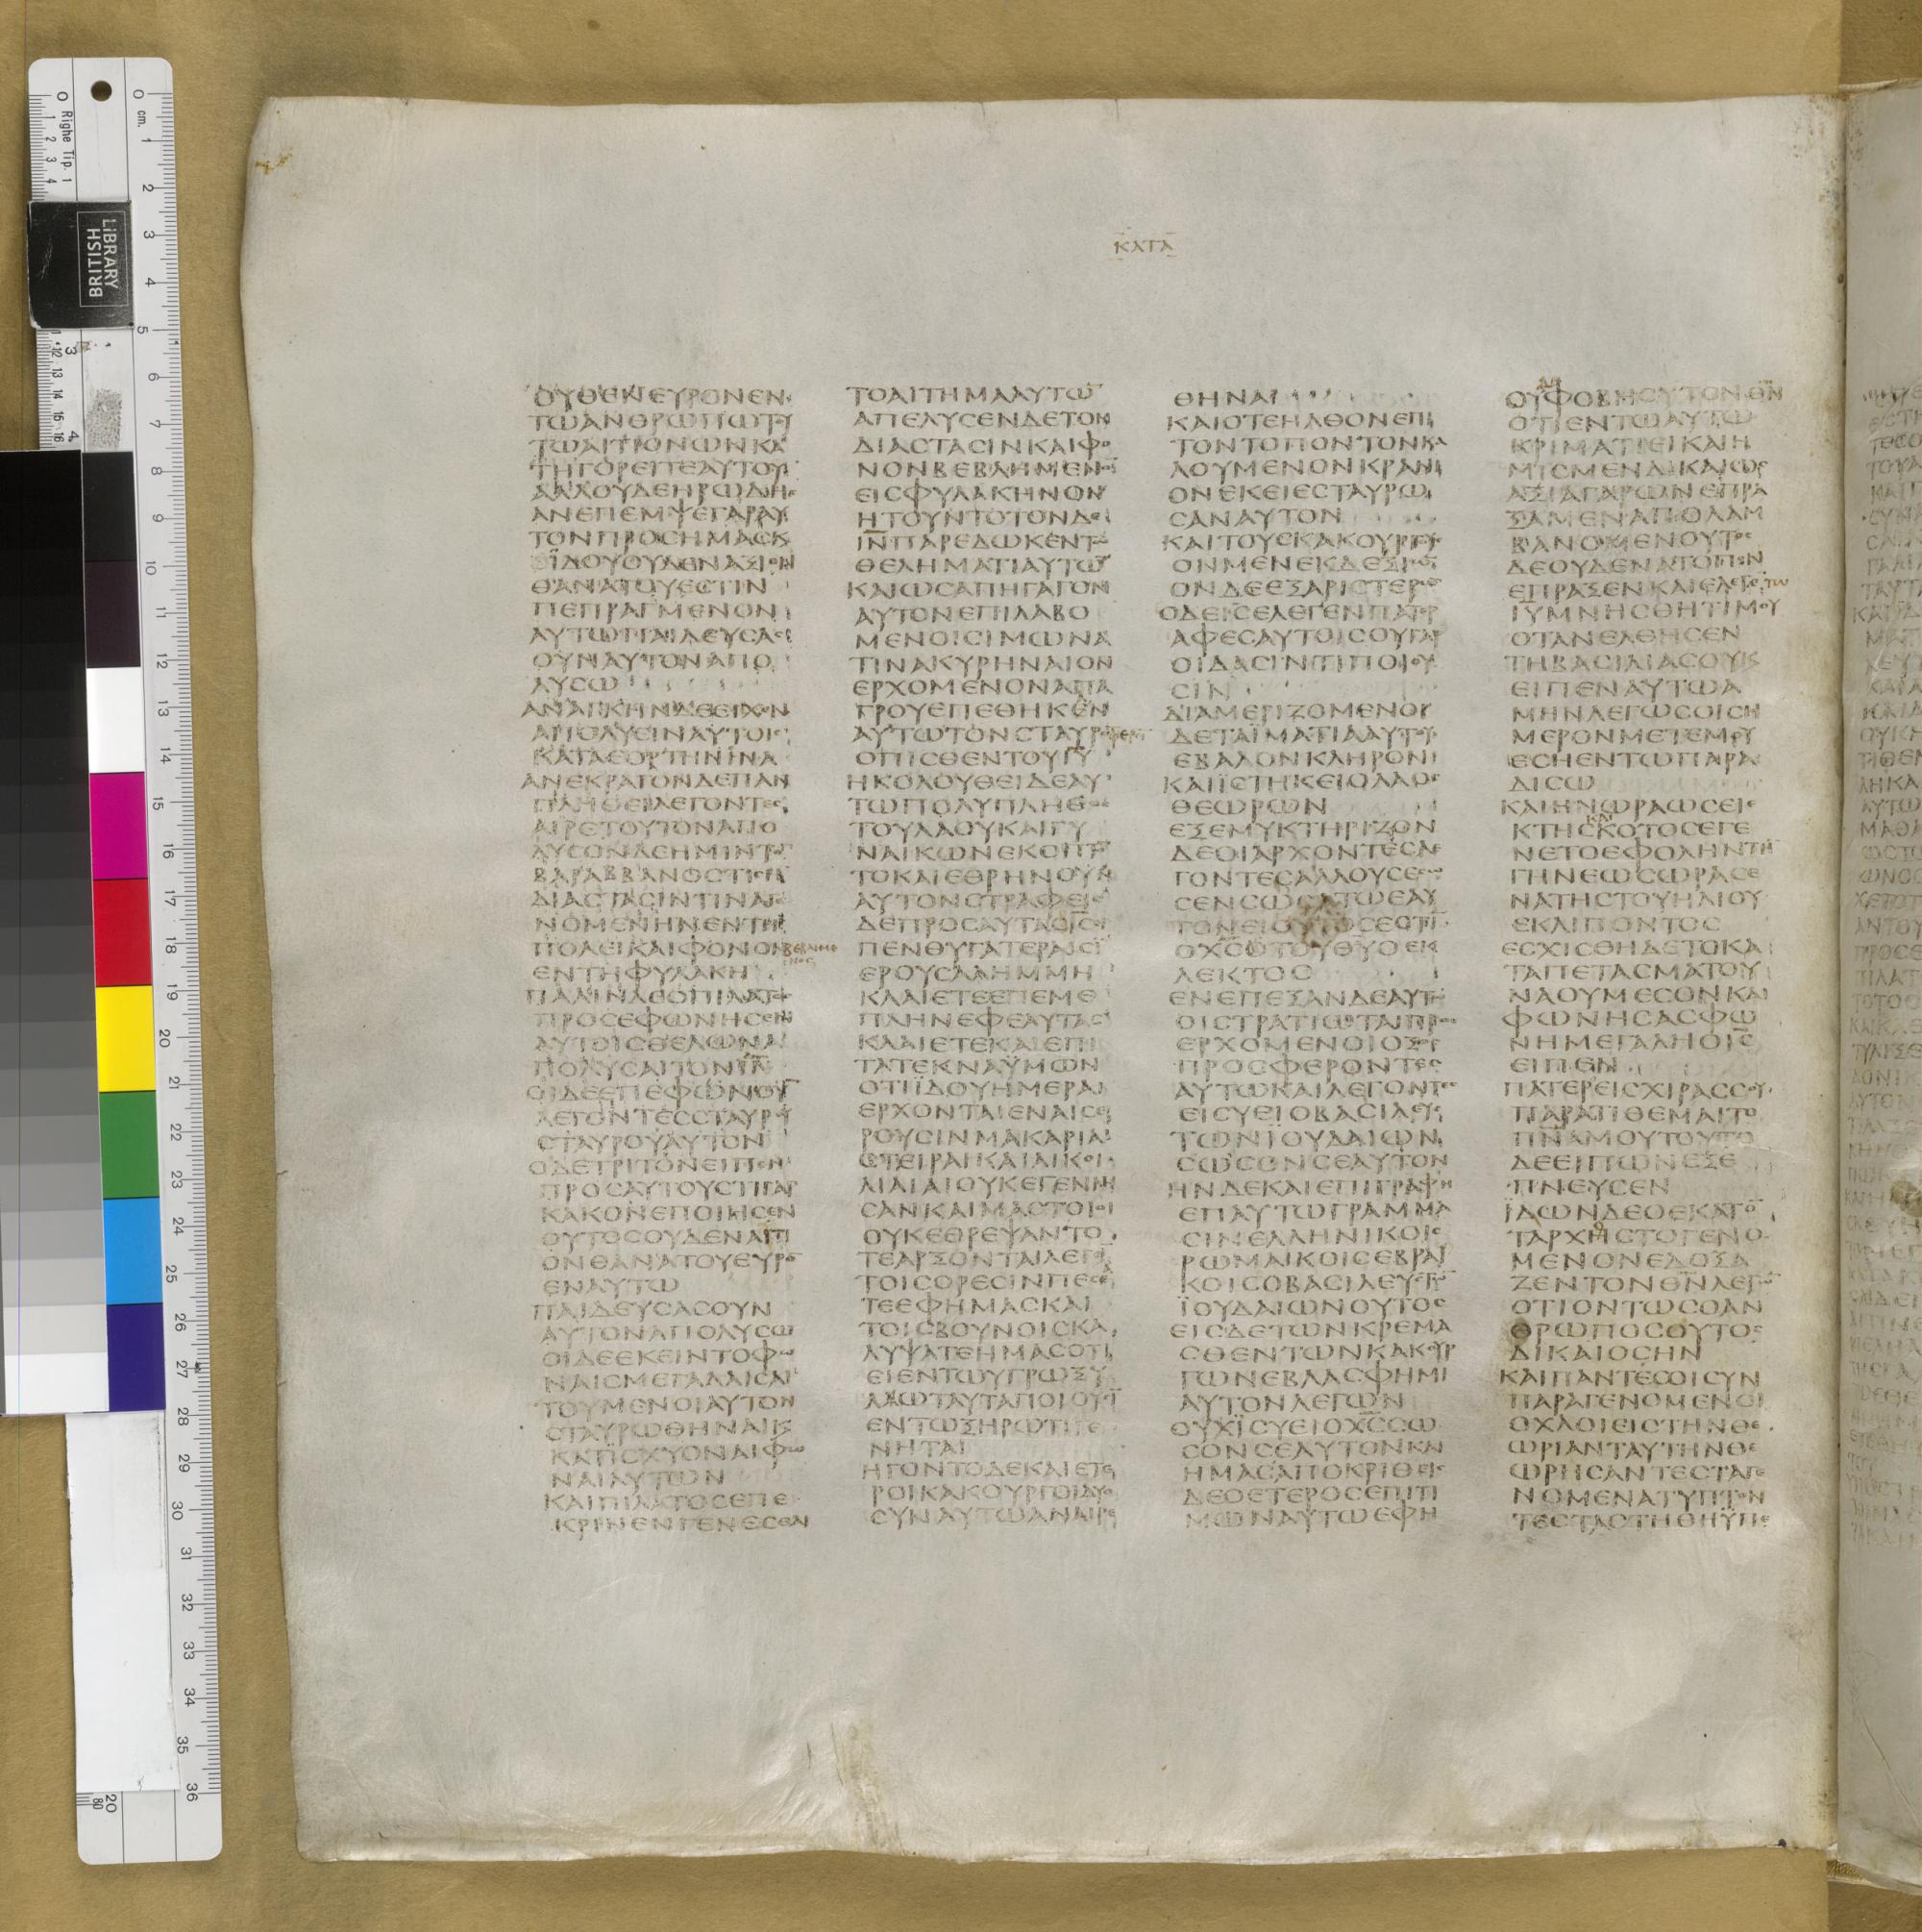 ΚΑΤΑ
ΟΥΘΕΝ ΕΥΡΟΝ ΕΝ
ΤΩ ΑΝΘΡΩΠΩ ΤΟΥ
ΤΩ ΑΙΤΙΟΝ ΩΝ ΚΑ
ΤΗΓΟΡΕΙΤΕ ΑΥΤΟΥ
ΑΛΛ ΟΥΔΕ ΗΡΩΔΗΣ
ΑΝΕΠΕΜΨΕ ΓΑΡ ΑΥ
ΤΟΝ ΠΡΟΣ ΗΜΑΣ Κ
ΪΔΟΥ ΟΥΔΕΝ ΑΞΙΟΝ
ΘΑΝΑΤΟΥ ΕΣΤΙΝ
ΠΕΠΡΑΓΜΕΝΟΝ
ΑΥΤΩ ΠΑΙΔΕΥΣΑΣ
ΟΥΝ ΑΥΤΟΝ ΑΠΟ
ΛΥΣΩ
ΑΝΑΓΚΗΝ ΔΕ ΕΙΧΕΝ
ΑΠΟΛΥΕΙΝ ΑΥΤΟΙΣ
ΚΑΤΑ ΕΟΡΤΗΝ ΕΝΑ
ΑΝΕΚΡΑΓΟΝ ΔΕ ΠΑΝ
ΠΛΗΘΕΙ ΛΕΓΟΝΤΕΣ
ΑΙΡΕ ΤΟΥΤΟΝ ΑΠΟ
ΛΥΣΟΝ ΔΕ ΗΜΙΝ ΤΟΝ
ΒΑΡΑΒΒΑΝ ΟΣΤΙΣ ΗΝ
ΔΙΑ ΣΤΑΣΙΝ ΤΙΝΑ ΓΕ
ΝΟΜΕΝΗΝ ΕΝ ΤΗ
ΠΟΛΕΙ ΚΑΙ ΦΟΝΟΝ ΒΕΒΛΗΜΕ
ΝΟΣ
ΕΝ ΤΗ ΦΥΛΑΚΗ
ΠΑΛΙΝ ΔΕ Ο ΠΙΛΑΤΟΣ
ΠΡΟΣΕΦΩΝΗΣΕΝ
ΑΥΤΟΙΣ ΘΕΛΩΝ Α
ΠΟΛΥΣΑΙ ΤΟΝ ΙΝ
ΟΙ ΔΕ ΕΠΕΦΩΝΟΥΝ
ΛΕΓΟΝΤΕΣ ΣΤΑΥΡΟΥ
ΣΤΑΥΡΟΥ ΑΥΤΟΝ
Ο ΔΕ ΤΡΙΤΟΝ ΕΙΠΕΝ
ΠΡΟΣ ΑΥΤΟΥΣ ΤΙ ΓΑΡ
ΚΑΚΟΝ ΕΠΟΙΗΣΕΝ
ΟΥΤΟΣ ΟΥΔΕΝ ΑΙΤΙ
ΟΝ ΘΑΝΑΤΟΥ ΕΥΡΟΝ
ΕΝ ΑΥΤΩ
ΠΑΙΔΕΥΣΑΣ ΟΥΝ
ΑΥΤΟΝ ΑΠΟΛΥΣΩ
ΟΙ ΔΕ ΕΚΕΙΝΤΟ ΦΩ
ΝΑΙΣ ΜΕΓΑΛΑΙΣ ΑΙ
ΤΟΥΜΕΝΟΙ ΑΥΤΟΝ
ΣΤΑΥΡΩΘΗΝΑΙ Κ
ΚΑΤΙΣΧΥΟΝ ΑΙ ΦΩ
ΝΑΙ ΑΥΤΩΝ
ΚΑΙ ΠΙΛΑΤΟΣ ΕΠΕ
ΚΡΙΝΕΝ ΓΕΝΕΣΘΑΙ
ΤΟ ΑΙΤΗΜΑ ΑΥΤΩ
ΑΠΕΛΥΣΕΝ ΔΕ ΤΟΝ
ΔΙΑ ΣΤΑΣΙΝ ΚΑΙ ΦΟ
ΝΟΝ ΒΕΒΛΗΜΕΝΟΝ
ΕΙΣ ΦΥΛΑΚΗΝ ΟΝ
ΗΤΟΥΝΤΟ ΤΟΝ ΔΕ
ΙΝ ΠΑΡΕΔΩΚΕΝ ΤΩ
ΘΕΛΗΜΑΤΙ ΑΥΤΩ
ΚΑΙ ΩΣ ΑΠΗΓΑΓΟΝ
ΑΥΤΟΝ ΕΠΙΛΑΒΟ
ΜΕΝΟΙ ΣΙΜΩΝΑ
ΤΙΝΑ ΚΥΡΗΝΑΙΟΝ
ΕΡΧΟΜΕΝΟΝ ΑΠ Α
ΓΡΟΥ ΕΠΕΘΗΚΕΝ
ΑΥΤΩ ΤΟΝ ΣΤΑΥΡΟ
ΟΠΙΣΘΕΝ ΤΟΥ ΙΥ
ΗΚΟΛΟΥΘΕΙ ΔΕ ΑΥ
ΤΩ ΠΟΛΥ ΠΛΗΘΟΣ
ΤΟΥ ΛΑΟΥ ΚΑΙ ΓΥ
ΝΑΙΚΩΝ ΕΚΟΠΤ
ΤΟ ΚΑΙ ΕΘΡΗΝΟΥΝ
ΑΥΤΟΝ ΣΤΡΑΦΕΙΣ
ΔΕ ΠΡΟΣ ΑΥΤΑΣ Ο ΙΣ ΕΙ
ΠΕΝ ΘΥΓΑΤΕΡΑΙΣ Ϊ
ΕΡΟΥΣΑΛΗΜ ΜΗ
ΚΛΑΙΕΤΕ ΕΠ ΕΜΕ
ΠΛΗΝ ΕΦ ΕΑΥΤΑΣ
ΚΛΑΙΕΤΕ ΚΑΙ ΕΠΙ
ΤΑ ΤΕΚΝΑ ΫΜΩΝ
ΟΤΙ ΪΔΟΥ ΗΜΕΡΑΙ
ΕΡΧΟΝΤΑΙ ΕΝ ΑΙΣ Ε
ΡΟΥΣΙΝ ΜΑΚΑΡΙΑΙ
Ε ΣΤΕΙΡΑΙ ΚΑΙ ΑΙ ΚΟΙ
ΛΙΑΙ ΑΙ ΟΥΚ ΕΓΕΝΝΗ
ΣΑΝ ΚΑΙ ΜΑΣΤΟΙ ΟΙ
ΟΥΚ ΕΘΡΕΨΑΝ ΤΟ
ΤΕ ΑΡΞΟΝΤΑΙ ΛΕΓΙ
ΤΟΙΣ ΟΡΕΣΙΝ ΠΕΣΑ
ΤΕ ΕΦ ΗΜΑΣ ΚΑΙ
ΤΟΙΣ ΒΟΥΝΟΙΣ ΚΑ
ΛΥΨΑΤΕ ΗΜΑΣ ΟΤΙ
ΕΙ ΕΝ ΤΩ ΥΓΡΩ ΞΥ
ΛΩ ΤΑΥΤΑ ΠΟΙΟΥΣΙ
ΕΝ ΤΩ ΞΗΡΩ ΤΙ ΓΕ
ΝΗΤΑΙ
ΗΓΟΝΤΟ ΔΕ ΚΑΙ ΕΤΕ
ΡΟΙ ΚΑΚΟΥΡΓΟΙ ΔΥΟ
ΣΥΝ ΑΥΤΩ ΑΝΑΙΡΕ
ΘΗΝΑΙ
ΚΑΙ ΟΤΕ ΗΛΘΟΝ ΕΠΙ
ΤΟΝ ΤΟΠΟΝ ΤΟΝ ΚΑ
ΛΟΥΜΕΝΟΝ ΚΡΑΝΙ
ΟΝ ΕΚΕΙ ΕΣΤΑΥΡΩ
ΣΑΝ ΑΥΤΟΝ
ΚΑΙ ΤΟΥΣ ΚΑΚΟΥΡΓΟΥΣ
ΟΝ ΜΕΝ ΕΚ ΔΕΞΙΩ
ΟΝ ΔΕ ΕΞ ΑΡΙΣΤΕΡΩ
Ο ΔΕ ΙΣ ΕΛΕΓΕΝ ΠΑΤΕΡ
ΑΦΕΣ ΑΥΤΟΙΣ ΟΥ ΓΑΡ
ΟΙΔΑΣΙΝ ΤΙ ΠΟΙΟΥ
ΣΙΝ
ΔΙΑΜΕΡΙΖΟΜΕΝΟΙ
ΔΕ ΤΑ ΪΜΑΤΙΑ ΑΥΤΟΥ
ΕΒΑΛΟΝ ΚΛΗΡΟΝ
ΚΑΙ ΪΣΤΗΚΕΙ Ο ΛΑΟΣ
ΘΕΩΡΩΝ
ΕΞΕΜΥΚΤΗΡΙΖΟΝ
ΔΕ ΟΙ ΑΡΧΟΝΤΕΣ ΛΕ
ΓΟΝΤΕΣ ΑΛΛΟΥΣ Ε
ΣΩΣΕΝ ΣΩΣΑΤΩ ΕΑΥ
ΤΟΝ ΕΙ ΟΥΤΟΣ ΕΣΤΙ
Ο ΧΣ Ο ΤΟΥ ΘΥ Ο ΕΚ
ΛΕΚΤΟΣ
ΕΝΕΠΕΞΑΝ ΔΕ ΑΥΤΩ
ΟΙ ΣΤΡΑΤΙΩΤΑΙ ΠΡΟΣ
ΕΡΧΟΜΕΝΟΙ ΟΞΟΣ
ΠΡΟΣΦΕΡΟΝΤΕΣ
ΑΥΤΩ ΚΑΙ ΛΕΓΟΝΤΕΣ
ΕΙ ΣΥ ΕΙ Ο ΒΑΣΙΛΕΥΣ
ΤΩΝ ΪΟΥΔΑΙΩΝ
ΣΩΣΟΝ ΣΕΑΥΤΟΝ
ΗΝ ΔΕ ΚΑΙ ΕΠΙΓΡΑΦΗ
ΕΠ ΑΥΤΩ ΓΡΑΜΜΑ
ΣΙΝ ΕΛΛΗΝΙΚΟΙΣ
ΡΩΜΑΙΚΟΙΣ ΕΒΡΑΙ
ΚΟΙΣ Ο ΒΑΣΙΛΕΥΣ ΤΩ
ΪΟΥΔΑΙΩΝ ΟΥΤΟΣ
ΕΙΣ ΔΕ ΤΩΝ ΚΡΕΜΑ
ΣΘΕΝΤΩΝ ΚΑΚΟΥΡ
ΓΩΝ ΕΒΛΑΣΦΗΜΙ
ΑΥΤΟΝ ΛΕΓΩΝ
ΟΥΧΪ ΣΥ ΕΙ Ο ΧΣ ΣΩ
ΣΟΝ ΣΕΑΥΤΟΝ ΚΑΙ
ΗΜΑΣ ΑΠΟΚΡΙΘΕΙΣ
ΔΕ Ο ΕΤΕΡΟΣ ΕΠΙΤΙ
ΜΩΝ ΑΥΤΩ ΕΦΗ
ΟΥ ΦΟΒΗ ΣΥ ΤΟΝ ΘΝ
ΟΤΙ ΕΝ ΤΩ ΑΥΤΩ
ΚΡΙΜΑΤΙ ΕΙ ΚΑΙ Η
ΜΙΣ ΜΕΝ ΔΙΚΑΙΩΣ
ΑΞΙΑ ΓΑΡ ΩΝ ΕΠΡΑ
ΞΑΜΕΝ ΑΠΟΛΑΜ
ΒΑΝΟΜΕΝ ΟΥΤΟΣ
ΔΕ ΟΥΔΕΝ ΑΤΟΠΟΝ
ΕΠΡΑΞΕΝ ΚΑΙ ΕΛΕΓΕ ΤΩ
ΙΥ ΜΝΗΣΘΗΤΙ ΜΟΥ
ΟΤΑΝ ΕΛΘΗΣ ΕΝ
ΤΗ ΒΑΣΙΛΙΑ ΣΟΥ Κ
ΕΙΠΕΝ ΑΥΤΩ Α
ΜΗΝ ΛΕΓΩ ΣΟΙ ΣΗ
ΜΕΡΟΝ ΜΕΤ ΕΜΟΥ
ΕΣΗ ΕΝ ΤΩ ΠΑΡΑ
ΔΙΣΩ
ΚΑΙ ΗΝ ΩΡΑ ΩΣΕΙ Ε
ΚΤΗ ΚΑΙ ΣΚΟΤΟΣ ΕΓΕ
ΝΕΤΟ ΕΦ ΟΛΗΝ ΤΗ
ΓΗΝ ΕΩΣ ΩΡΑΣ Ε
ΝΑΤΗΣ ΤΟΥ ΗΛΙΟΥ
ΕΚΛΙΠΟΝΤΟΣ
ΕΣΧΙΣΘΗ ΔΕ ΤΟ ΚΑ
ΤΑΠΕΤΑΣΜΑ ΤΟΥ
ΝΑΟΥ ΜΕΣΟΝ ΚΑΙ
ΦΩΝΗΣΑΣ ΦΩ
ΝΗ ΜΕΓΑΛΗ Ο ΙΣ
ΕΙΠΕΝ
ΠΑΤΕΡ ΕΙΣ ΧΙΡΑΣ ΣΟΥ
ΠΑΡΑΤΙΘΕΜΑΙ ΤΟ
ΠΝΑ ΜΟΥ ΤΟΥΤΟ
ΔΕ ΕΙΠΩΝ ΕΞΕ
ΠΝΕΥΣΕΝ
ΪΔΩΝ ΔΕ Ο ΕΚΑΤΟ
ΤΑΡΧΗΣ ΤΟ ΓΕΝΟ
ΜΕΝΟΝ ΕΔΟΞΑ
ΖΕΝ ΤΟΝ ΘΝ ΛΕΓΩ
ΟΤΙ ΟΝΤΩΣ Ο ΑΝ
ΘΡΩΠΟΣ ΟΥΤΟΣ
ΔΙΚΑΙΟΣ ΗΝ
ΚΑΙ ΠΑΝΤΕΣ ΟΙ ΣΥΝ
ΠΑΡΑΓΕΝΟΜΕΝΟΙ
ΟΧΛΟΙ ΕΙΣ ΤΗΝ ΘΕ
ΩΡΙΑΝ ΤΑΥΤΗΝ ΘΕ
ΩΡΗΣΑΝΤΕΣ ΤΑ ΓΕ
ΝΟΜΕΝΑ ΤΥΠΤΟΝ
ΤΕΣ ΤΑ ΣΤΗΘΗ ΫΠΕ
BRITISH
LIBRARY